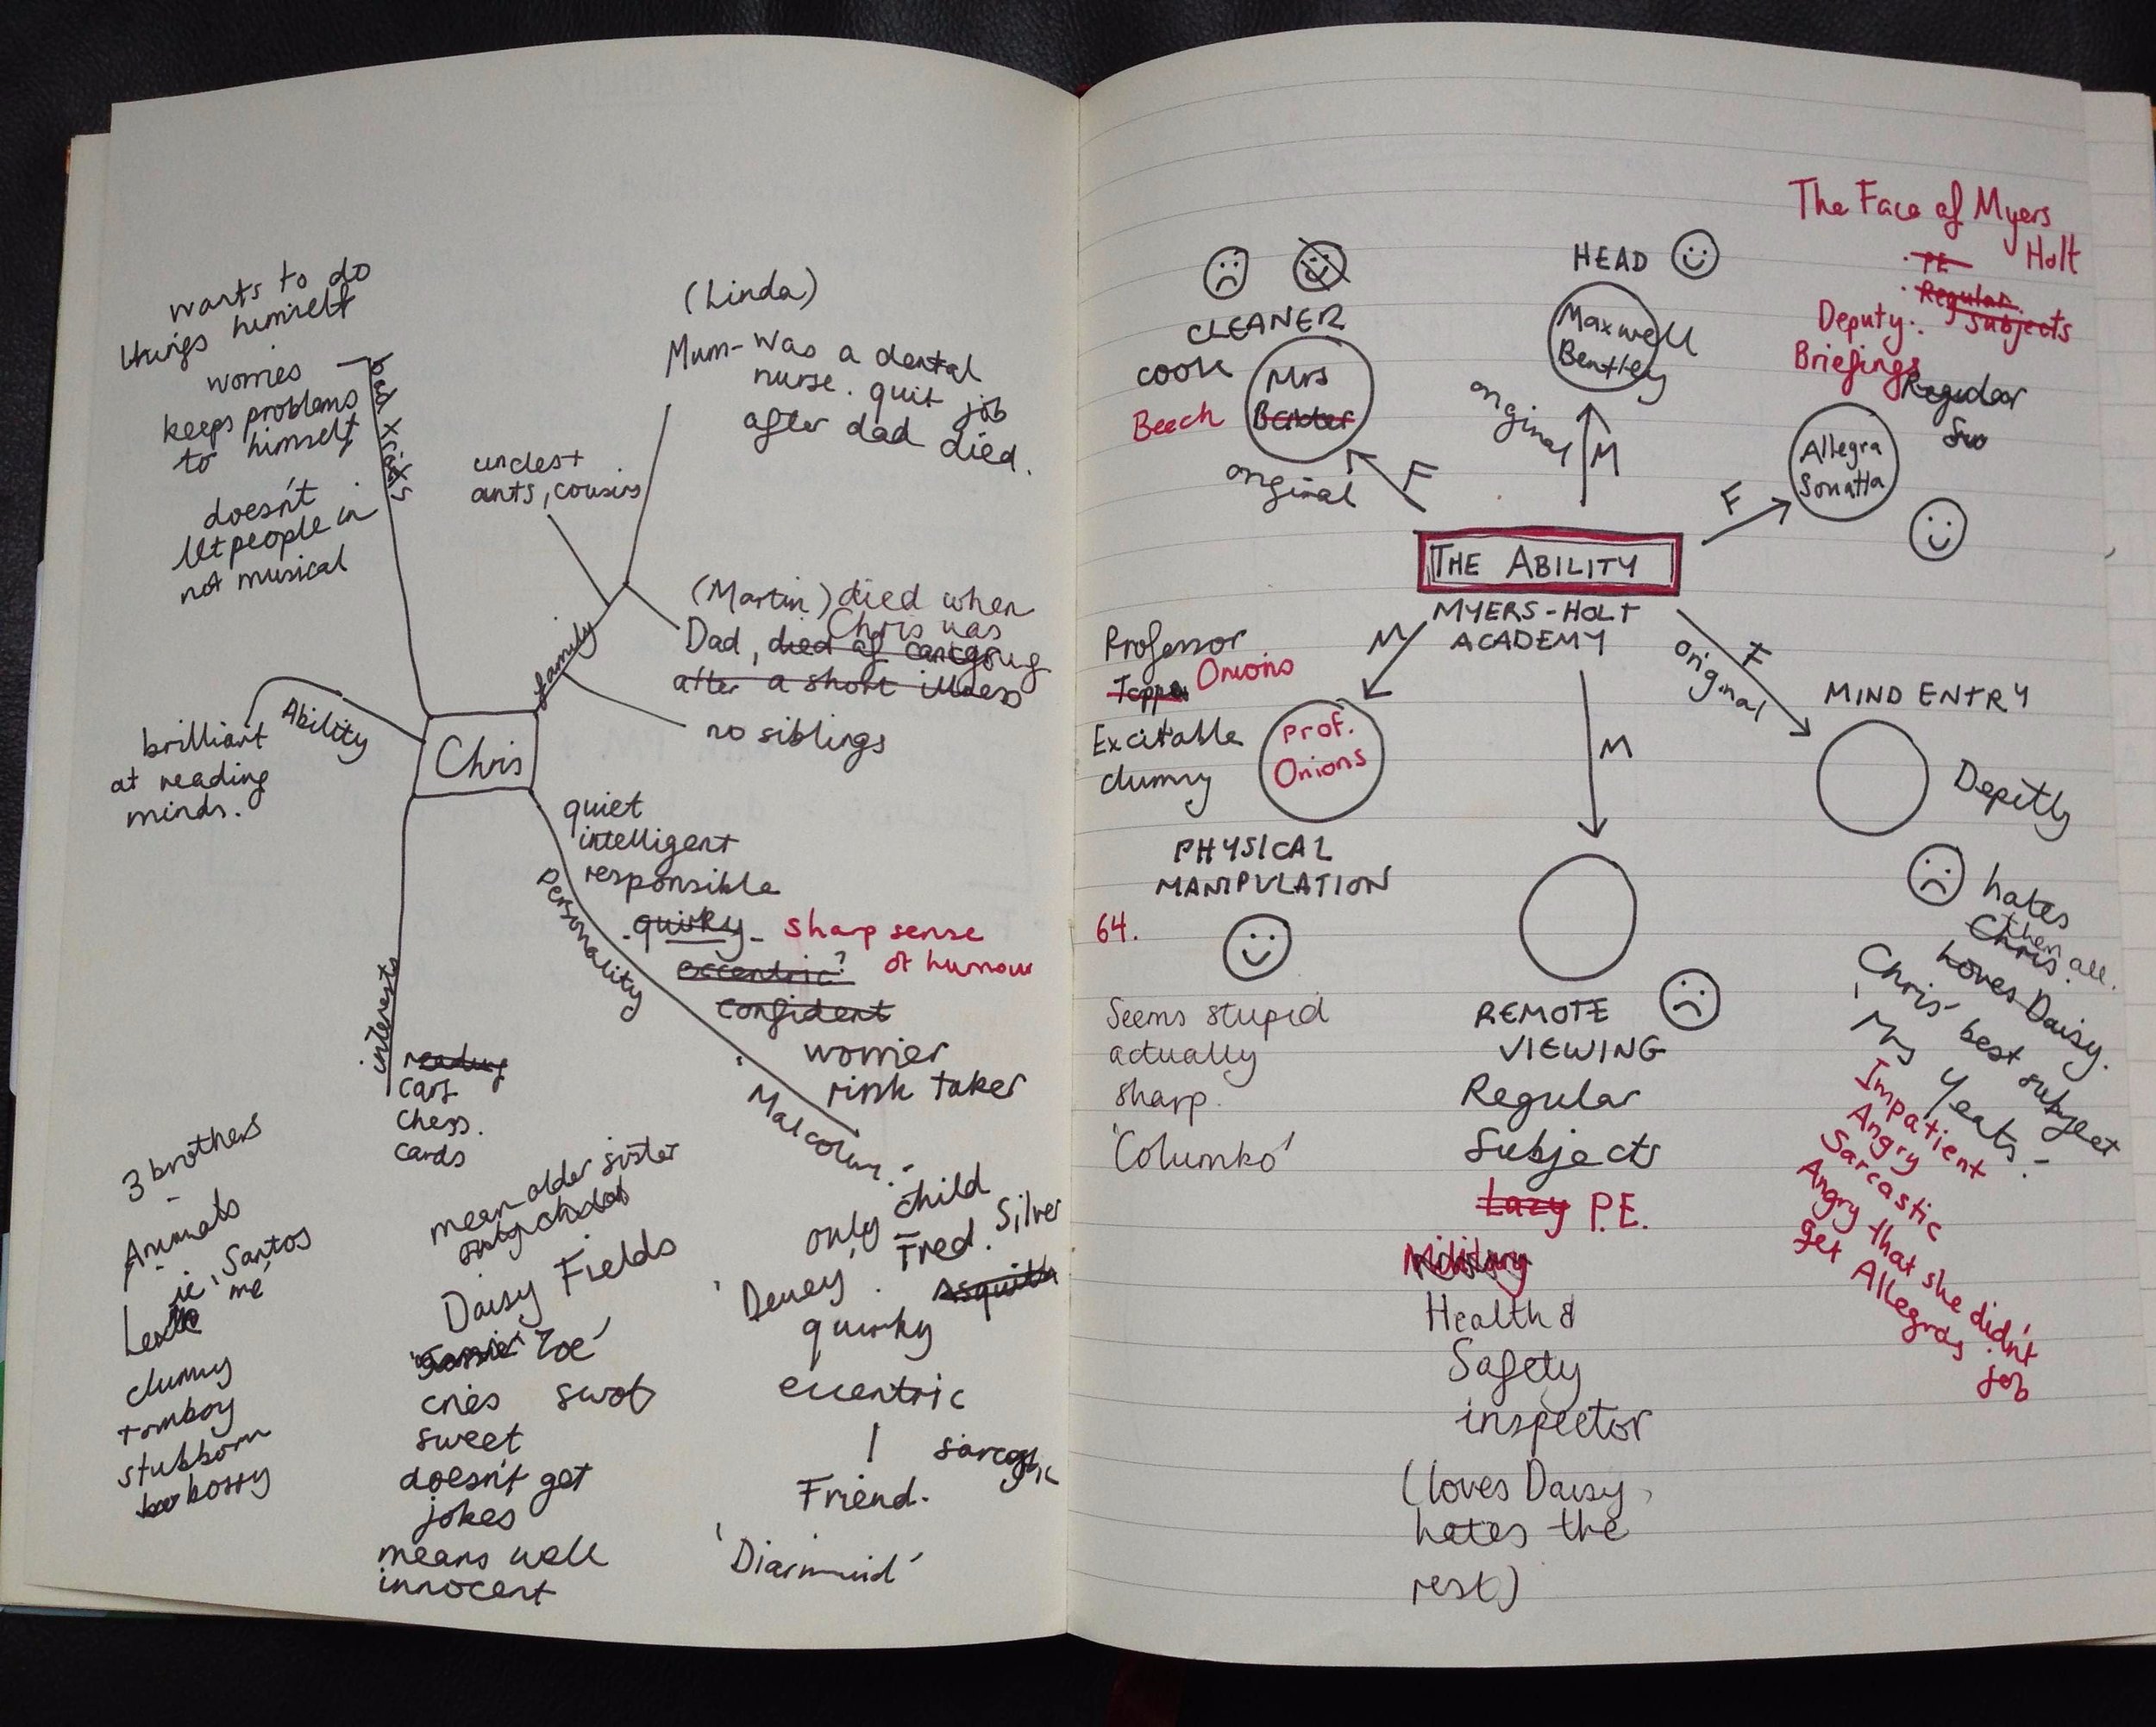 wants to do
things himself
worries
keeps problems
to himself
doesn't
let people in
not musical
bad traits
(Linda)
Mum- was a dental
nurse. quit job
after dad died.
uncles+
ants, cousins
family
(Martin) died when
Chris was
Dad, died of cancer young
after a short illness
no siblings
Ability
brilliant
at reading
minds.
Chris
quiet
intelligent
responsible
quirky - sharp sense
of humour
eccentric?
confident
worrier
risk taker
personality
interests
reading
cars
chess.
cards
Malcolm.
3 brothers
Animals
ie 'Santos
me'
clumsy
tomboy
stubborn
bossy
mean older sister
Daisy Fields
'Zoe'
cries swot
sweet
doesn't get
jokes
means well
innocent
only child
'Dewey'. Fred. Silver
Asquith
quirky
eccentric
sarcastic
Friend.
'Diarmuid'
The Face of Myers
Holt
· PE
· Regular
subjects
Deputy:
Briefings
Regular
Su
HEAD
Maxwell
Bentley
original
M
CLEANER
cook
Mrs
Baxter
Beech
original
F
Allegra
Sonatta
F
THE ABILITY
MYERS-HOLT
ACADEMY
M
Professor
Topper Onions
Excitable
clumsy
Prof.
Onions
PHYSICAL
MANIPULATION
64.
Seems stupid
actually
sharp.
'Columbo'
M
REMOTE
VIEWING
Regular
Subjects
Lazy P.E.
Military
Health &
Safety
inspector
(loves Daisy,
hates the
rest)
F
original
MIND ENTRY
Depitly
hates
Chris
them all.
Loves Daisy.
Chris' best subject
'Mrs Yeats'-
Impatient
Angry
Sarcastic
Angry that she didn't
get Allegras job